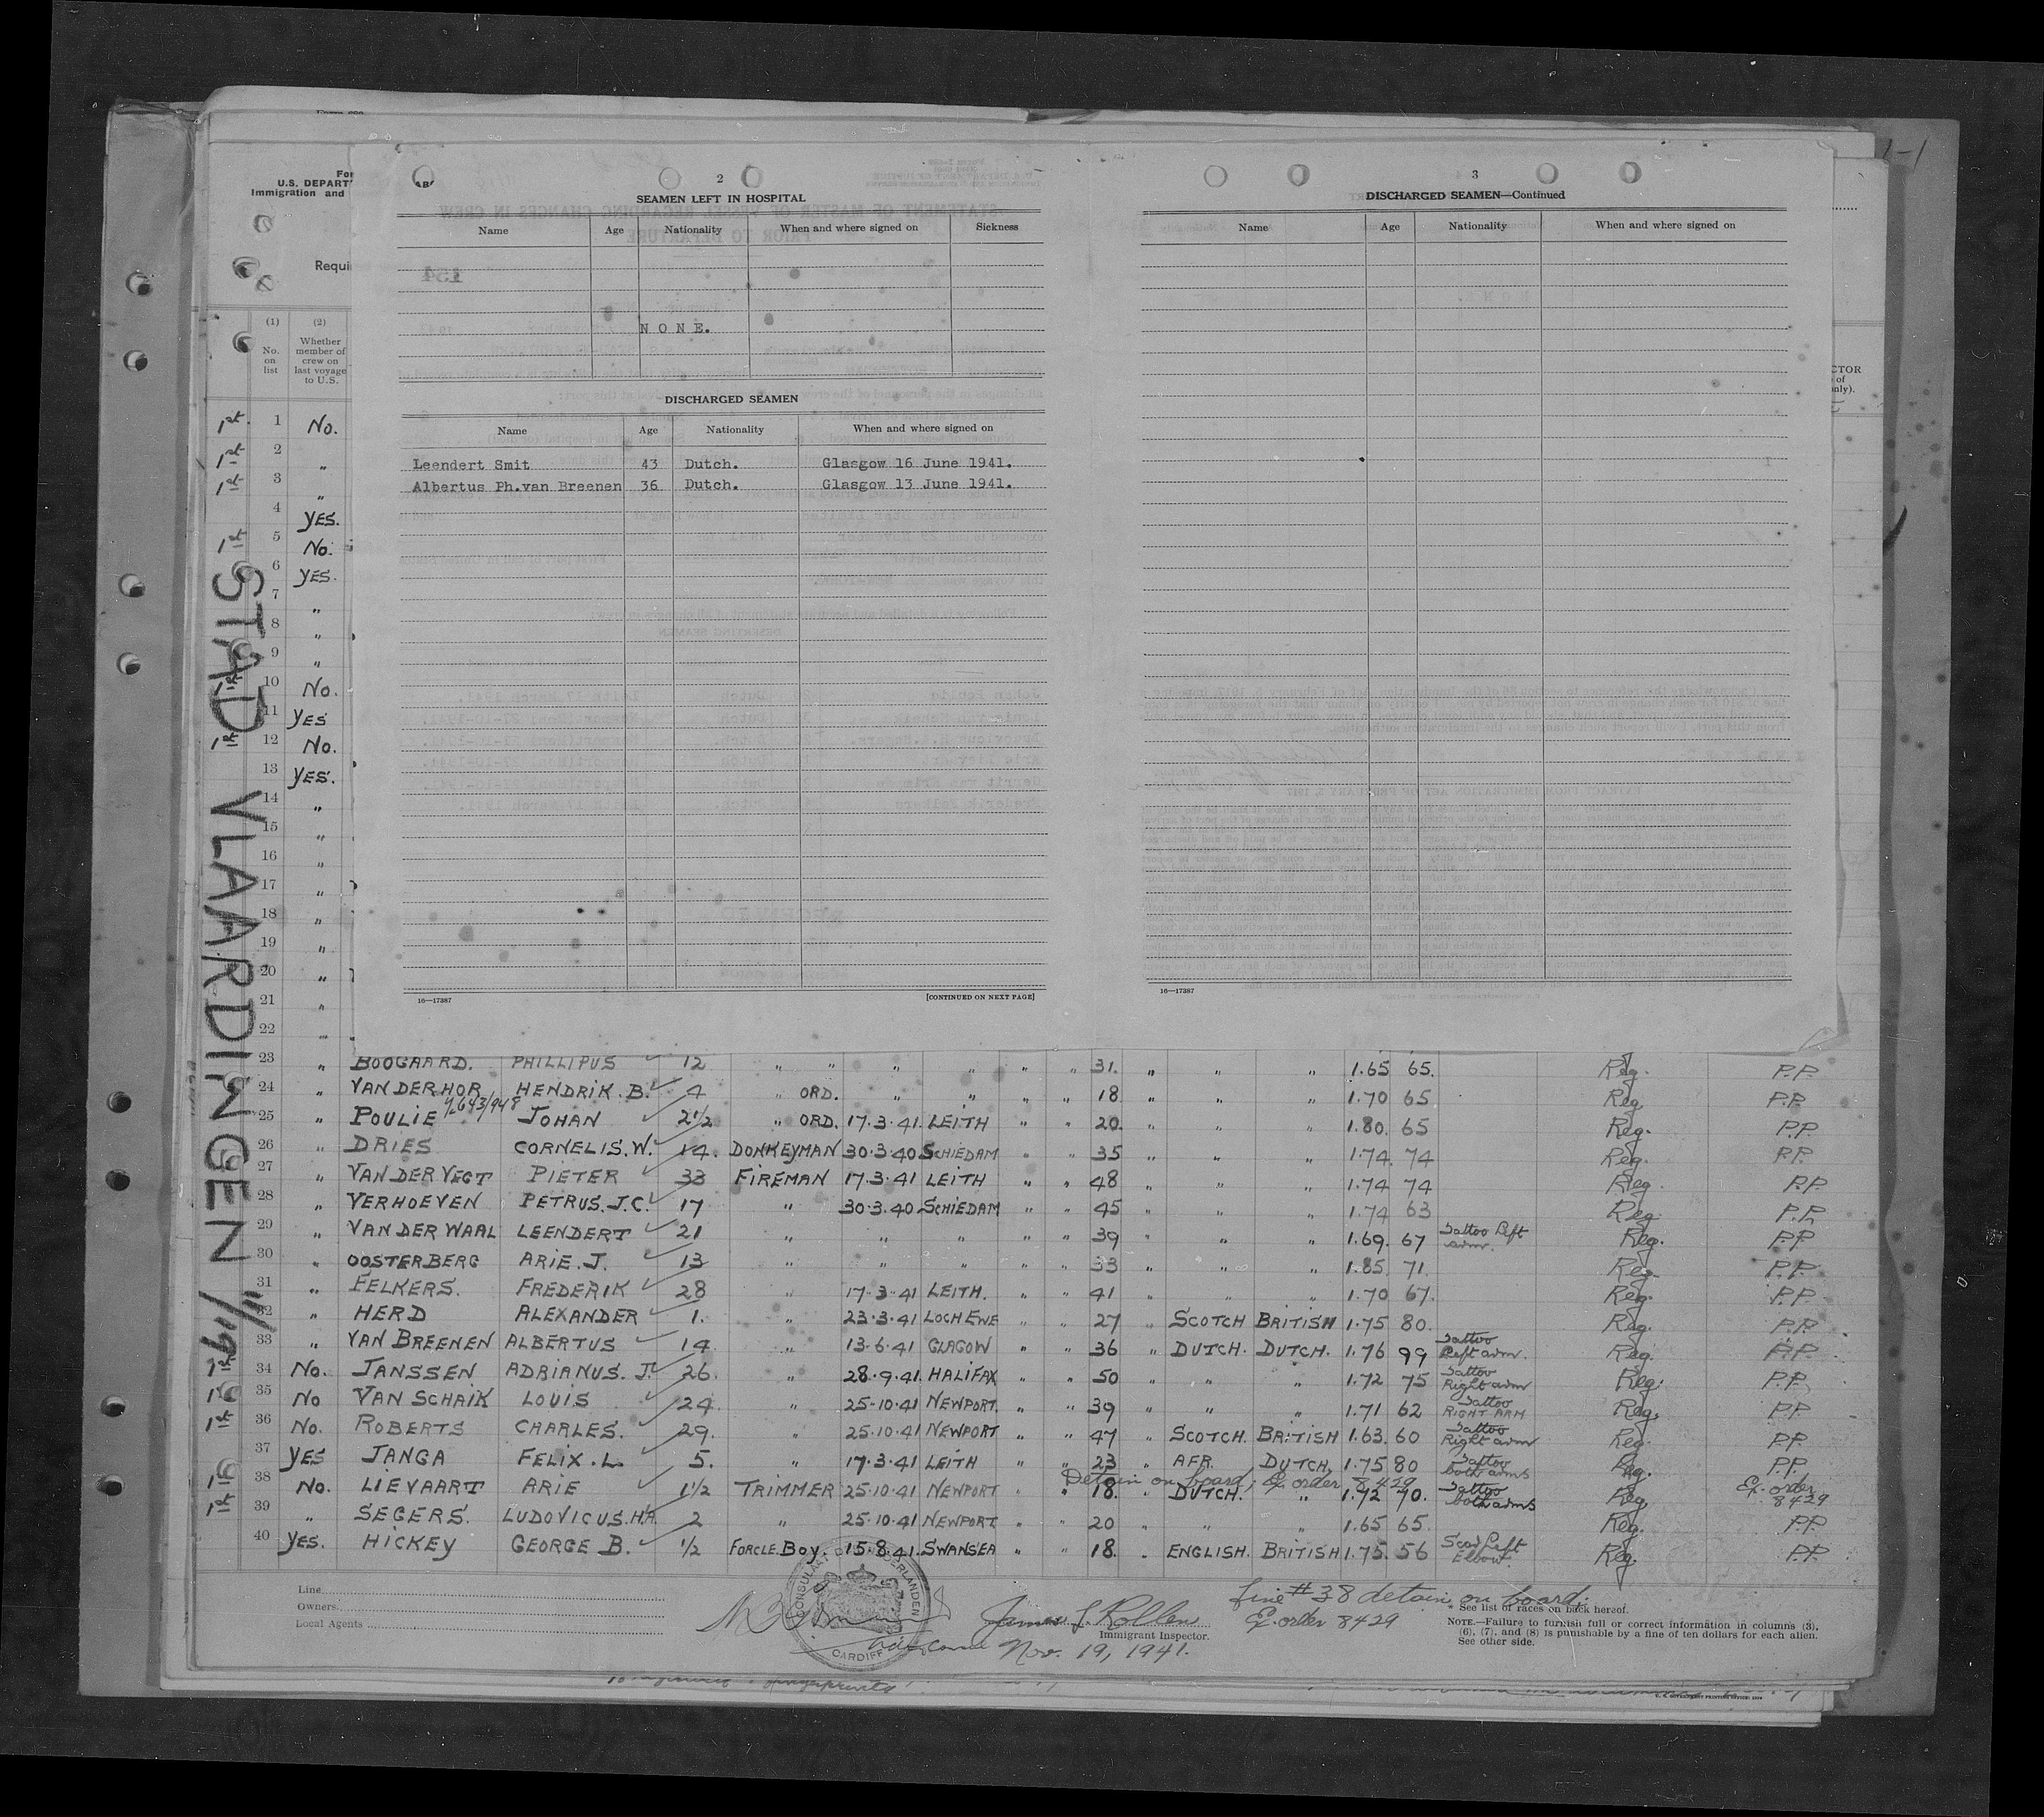 For
U.S. DEPART
Immigration and
Requi
(1) (2)
No. on list
Whether member of crew on last voyage to U.S.
2
SEAMEN LEFT IN HOSPITAL
Name Age Nationality When and where signed on Sickness
NONE.
DISCHARGED SEAMEN
Name Age Nationality When and where signed on
Leendert Smit 43 Dutch. Glasgow 16 June 1941.
Albertus Ph.van Breenen 36 Dutch. Glasgow 13 June 1941.
16—17387 [CONTINUED ON NEXT PAGE]
3
DISCHARGED SEAMEN—Continued
Name Age Nationality When and where signed on
16—17387
CTOR
of
only).
STAD VLAARDINGEN 11/19
1st 1 No.
1st 2 "
1st 3 "
4 YES.
1st 5 No.
6 YES.
7 "
8 "
9 "
10 No.
11 YES
1st 12 No.
13 YES.
14 "
15 "
16 "
17 "
18 "
19 "
20 "
21 "
22 "
23 " BOOGAARD. PHILLIPUS 12 " " " " " " 31. " " " 1.65 65. Reg. P.P.
24 " VAN DER HOR HENDRIK.B. 4 " ORD. " " " " 18. " " " 1.70 65. Reg. P.P.
25 " POULIE JOHAN 2½ " ORD. 17.3.41. LEITH " " 20. " " " 1.80. 65 Reg. P.P.
26 " DRIES CORNELIS.W. 14. DONKEYMAN 30.3.40 SCHIEDAM " " 35 " " " 1.74. 74 Reg. P.P.
27 " VAN DER VEGT PIETER 33 FIREMAN 17.3.41 LEITH " " 48 " " " 1.74 74 Reg. P.P.
28 " VERHOEVEN PETRUS.J.C. 17 " 30.3.40. SCHIEDAM " " 45 " " " 1.74 63 Reg. P.P.
29 " VAN DER WAAL LEENDERT 21 " " " " " 39 " " " 1.69. 67 Tattoo left arm. Reg. P.P.
30 " OOSTERBERG ARIE.J. 13 " " " " " 33 " " " 1.85. 71. Reg. P.P.
31 " FELKERS. FREDERIK 28 " 17.3.41 LEITH. " " 41 " " " 1.70 67. Reg. P.P.
32 " HERD ALEXANDER 1. " 23.3.41 LOCH EWE " " 27 " SCOTCH BRITISH 1.75 80. Reg. P.P.
33 " VAN BREENEN ALBERTUS 14. " 13.6.41 GLAGOW " " 36 " DUTCH. DUTCH. 1.76 99 Tattoo left arm. Reg. P.P.
1st 34 No. JANSSEN ADRIANUS.J. 26. " 28.9.41. HALIFAX " " 50 " " " 1.72 75 Tattoo Right arm Reg. P.P.
1st 35 No VAN SCHAIK LOUIS 24. " 25-10-41 NEWPORT. " " 39 " " " 1.71 62 Tattoo RIGHT ARM Reg. P.P.
1st 36 No. ROBERTS CHARLES. 29. " 25.10.41 NEWPORT " " 47 " SCOTCH. BRITISH 1.63. 60 Tattoo Right arm Reg. P.P.
37 YES JANGA FELIX.L. 5. " 17.3.41 LEITH " " 23 " AFR. DUTCH. 1.75 80 Tattoo both arms Reg. P.P.
Detain on board; Ex. order 8429
1st 38 No. LIEVAART ARIE 1½ TRIMMER 25.10.41 NEWPORT " " 18. " DUTCH. " 1.72 70. Tattoo both arms Reg. Ex. order 8429
1st 39 " SEGERS. LUDOVICUS.H.A. 2 " 25.10.41 NEWPORT " " 20 " " " 1.65 65. Reg. P.P.
40 YES. HICKEY GEORGE B. ½ FORCLE.Boy. 15.8.41. SWANSEA " " 18. " ENGLISH. BRITISH 1.75. 56 Scar left Elbow. Reg. P.P.
Line
Owners
Local Agents
CARDIFF
James L. Rollen
Immigrant Inspector.
Nov. 19, 1941.
Line #38 detain on board.
Ex. order 8429
* See list of races on back hereof.
NOTE.—Failure to furnish full or correct information in columns (3), (6), (7), and (8) is punishable by a fine of ten dollars for each alien. See other side.